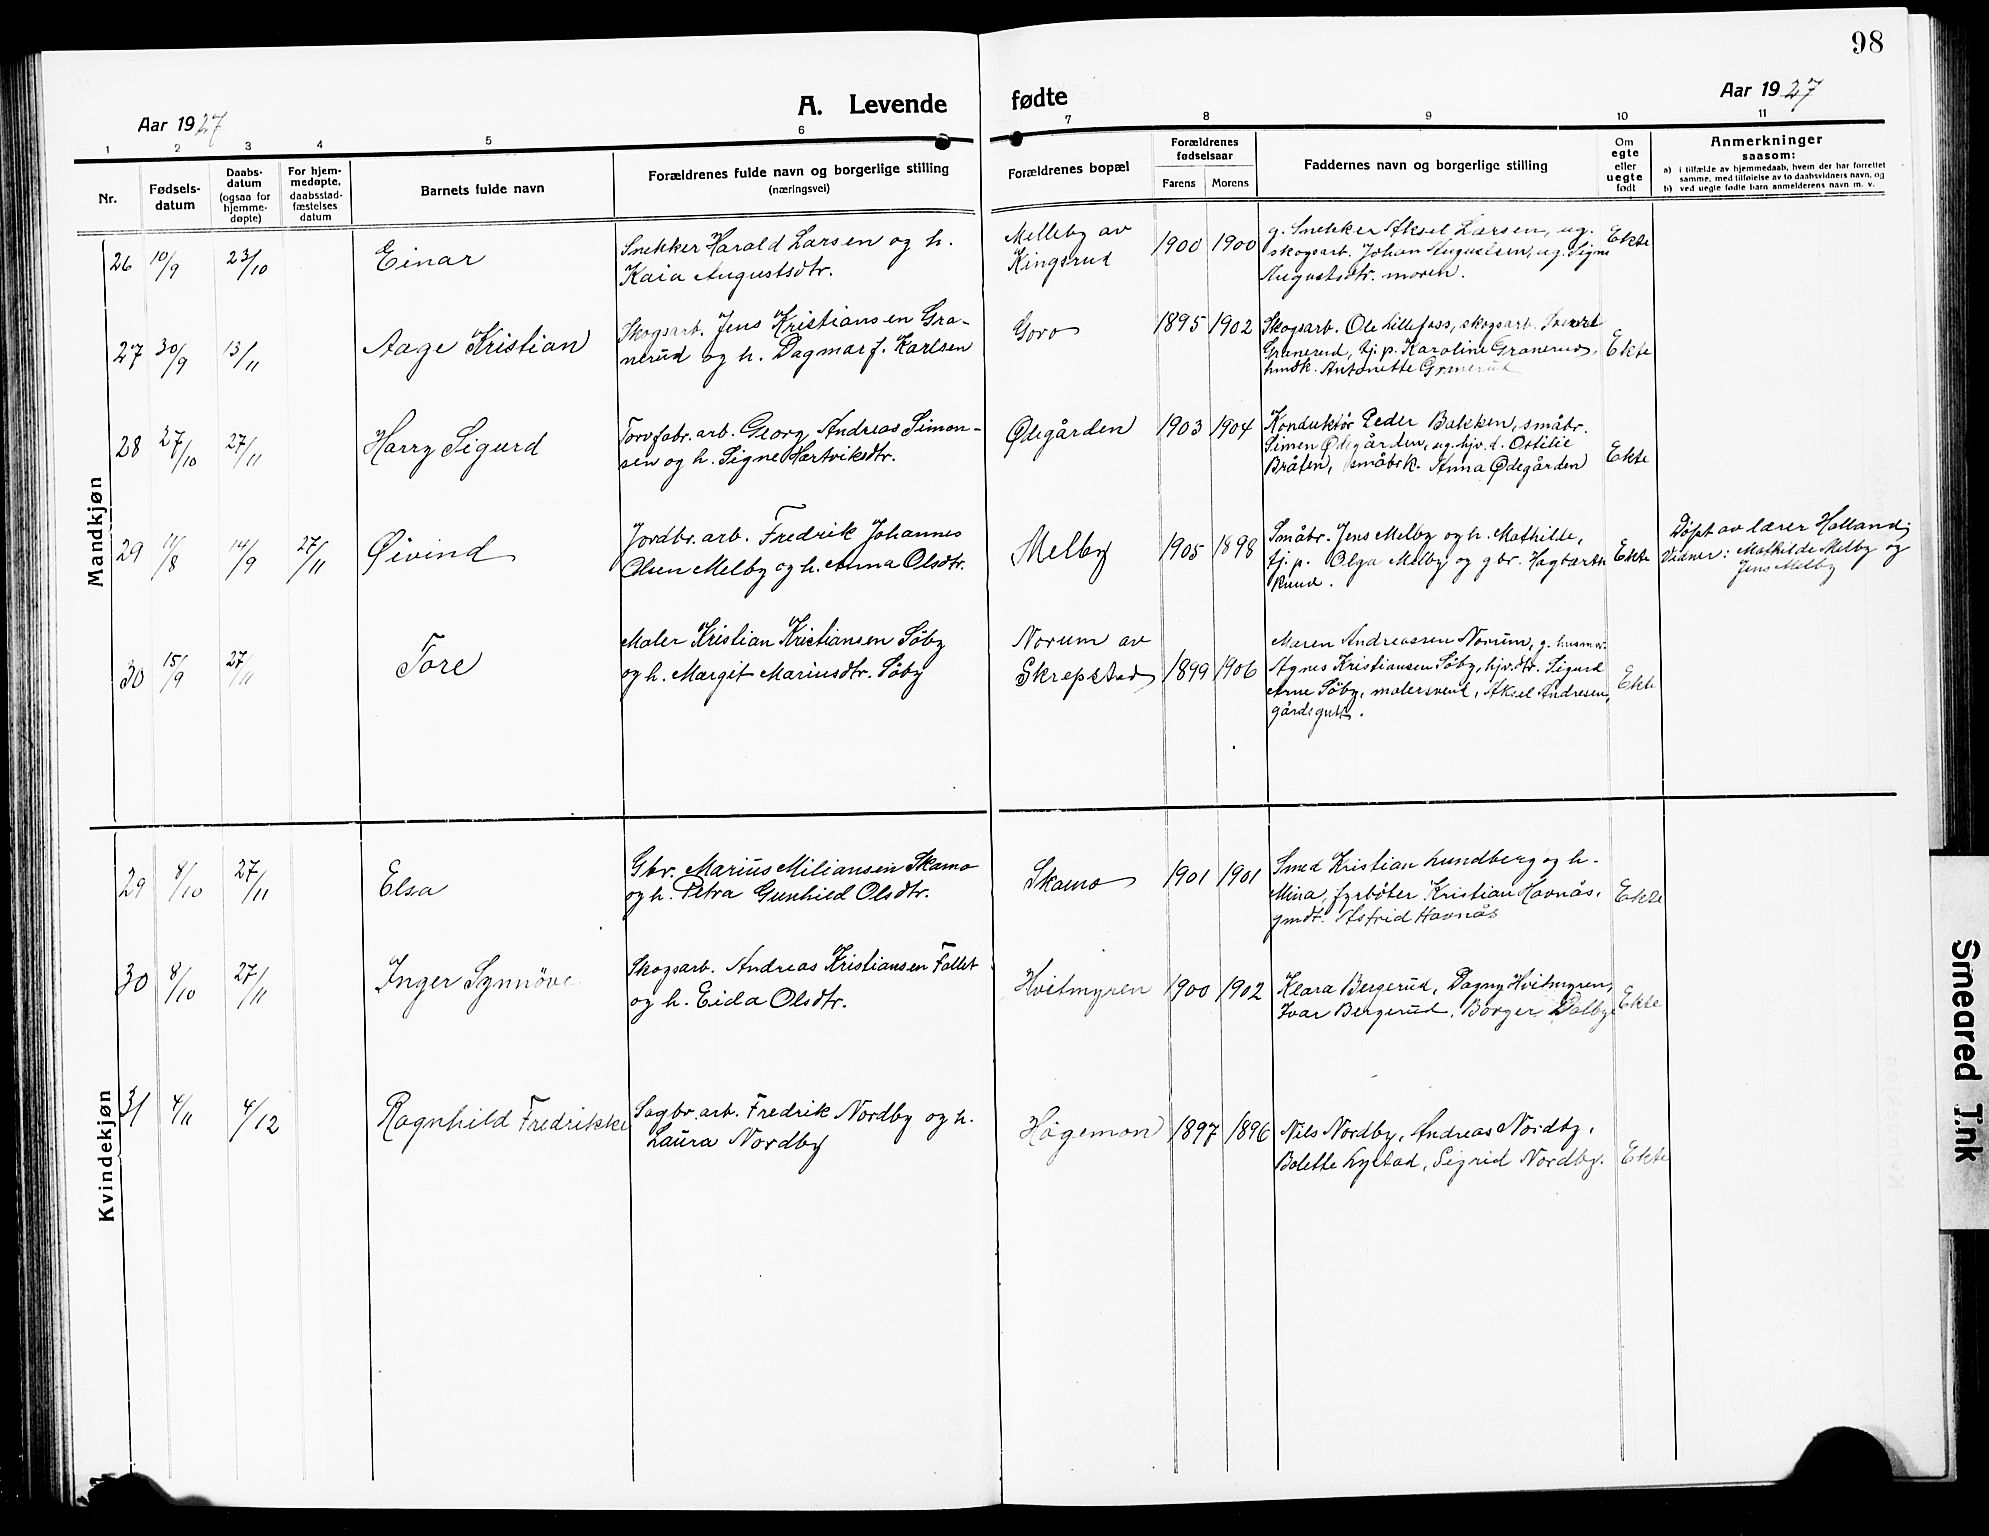 98
Aar 1927
A. Levende fødte
Aar 1927
1 2 3 4 5 6 7 8 9 10 11
Nr.
Fødsels-
datum
Daabs-
datum
(ogsaa for
hjemme-
døpte)
For hjem-
medøpte,
daabsstad-
fæstelses
datum
Barnets fulde navn
Forældrenes fulde navn og borgerlige stilling
(næringsvei)
Forældrenes bopæl
Forældrenes
fødselsaar
Farens Morens
Faddernes navn og borgerlige stilling
Om
egte
eller
uegte
født
Anmerkninger
saasom:
a) i tilfælde av hjemmedaab, hvem der har forrettet
samme, med tilføielse av to daabsvidners navn, og
b) ved uegte fødte barn anmelderens navn m. v.
Mandkjøn
26 10/9 23/10 Einar
Snekker Harald Larsen og h.
Kaia Augustsdtr.
Melleby av
Kingsrud
1900 1900
g. Snekker Aksel Larsen, ug.
skogsarb. Johan Augustsen, ug. Signe
Augustsdtr. moren.
Ekte
27 30/9 13/11 Aage Kristian
Skogsarb. Jens Kristiansen Gra-
nerud og h. Dagmar f. Karlsen
Goro
1895 1902
Skogsarb. Ole Lillefoss, skogsarb. Sverre
Granerud, tj. p. Karoline Granerud,
hmdk. Antonette Granerud
Ekte
28 27/10 27/11 Harry Sigurd
Torvfabr. arb. Georg Andreas Simon-
sen og h. Signe Hartviksdtr.
Ødegården
1903 1904
Konduktør Peder Bakken, småbr.
Simen Ødegården, ug. hjv. d. Ottilie
Bråten, småbrk. Anna Ødegården
Ekte
29 11/8 14/9 27/11 Øivind
Jordbr. arb. Fredrik Johannes
Olsen Melby og h. Anna Olsdtr.
Melby
1905 1898
Småbr. Jens Melby og h. Mathilde,
tj. p. Olga Melby og gbr. Hagbarth
Ruud.
Ekte
Døpt av lærer Holland;
Vidner: Mathilde Melby og
Jens Melby
30 15/9 27/11 Tore
Maler Kristian Kristiansen Søby
og h. Margit Mariusdtr. Søby
Norum av
Skrepstad
1899 1906
Maren Andreassen Norum, g. husmor.
Agnes Kristiansen Søby, hjv. dtr. Sigurd
Arne Søby, malersvend, Aksel Andresen,
gårdsgutt.
Ekte
Kvindekjøn
29 8/10 27/11 Elsa
Gbr. Marius Miliansen Skamo
og h. Petra Gunhild Olsdtr.
Skamo
1901 1901
Smed Kristian Lundberg og h.
Mina, fyrbøter Kristian Havnås,
gmdt. Astrid Havnås
Ekte
30 8/10 27/11 Inger Synnöve
Skogsarb. Andreas Kristiansen Fallet
og h. Eida Olsdtr.
Hvitmyren
1900 1902
Klara Bergerud, Dagny Hvitmyren,
Ivar Bergerud, Borger Dalby
Ekte
31 4/11 4/12 Ragnhild Fredrikke
Sagbr. arb. Fredrik Nordby og h.
Laura Nordby
Högemon
1897 1896
Nils Nordby, Andreas Nordby,
Bolette Lystad, Sigrid Nordby.
Ekte
Smeared Ink